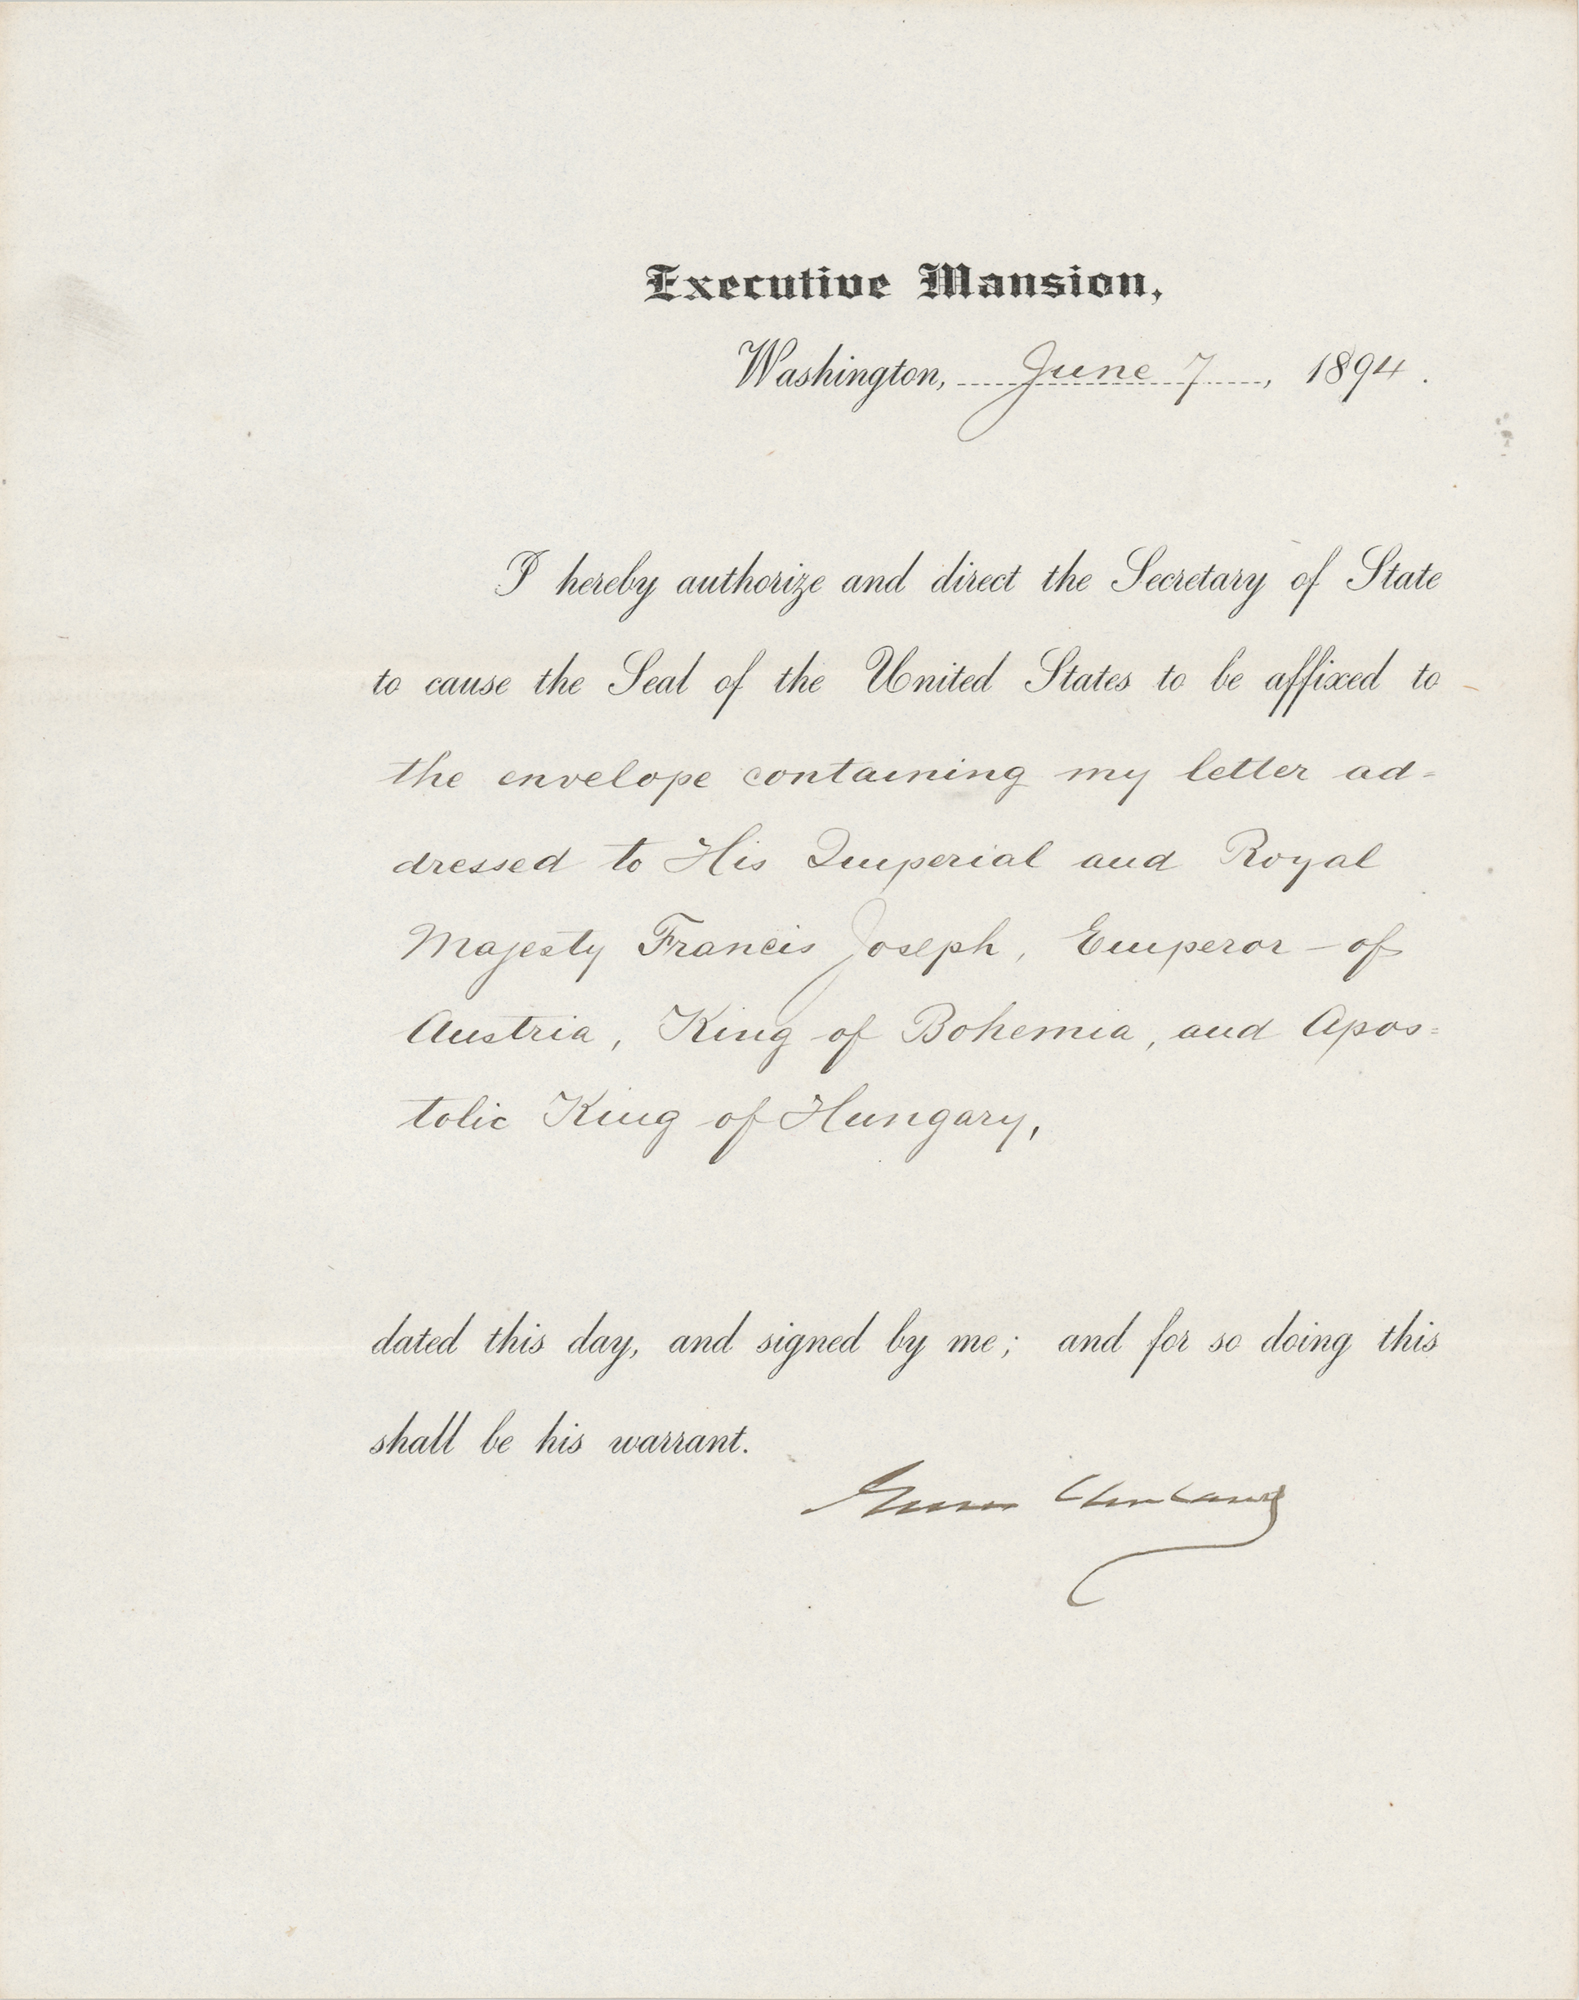 Executive Mansion,
Washington, June 7, 1894.
I hereby authorize and direct the Secretary of State
to cause the Seal of the United States to be affixed to
the envelope containing my letter ad-
dressed to His Imperial and Royal
Majesty Francis Joseph, Emperor of
Austria, King of Bohemia, and Apos=
tolic King of Hungary,
dated this day, and signed by me; and for so doing this
shall be his warrant.
Grover Cleveland